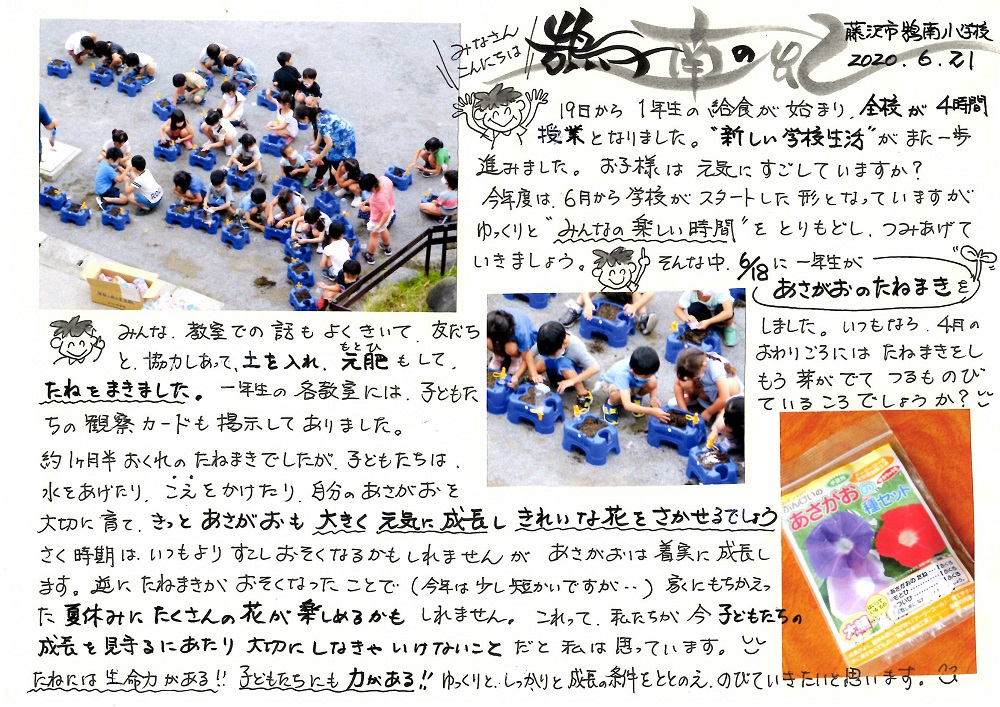 みなさん
こんにちは
鵠南の風
藤沢市鵠南小学校
2020.6.21
19日から 1年生の 給食が 始まり、全校が 4時間
授業となりました。"新しい学校生活"が また一歩
進みました。 お子様は 元気に すごしていますか?
今年度は、6月から学校が スタートした 形となっていますが
ゆっくりと "みんなの楽しい時間"を とりもどし、つみあげて
いきましょう。 そんな中、6/18に 一年生が
あさがおのたねまきを
しました。 いつもなら、4月の
おわりごろには たねまきをし
もう 芽がでて つるものび
ている ころでしょうか?
みんな、教室での 話も よくきいて、友だち
と、協力しあって、土を入れ、元肥もして、
もとひ
たねをまきました。 一年生の 各教室には、子どもた
ちの 観察カードも 掲示して ありました。
約1ヶ月半 おくれの たねまきでしたが、子どもたちは、
水をあげたり、こえをかけたり、自分のあさがおを
大切に育て、きっと あさがおも 大きく 元気に 成長し きれいな花を さかせるでしょう
さく時期は、いつもより すこしおそくなるかもしれませんが あさがおは 着実に成長し
ます。逆に たねまきが おそくなったことで(今年は少し短かいですが…)家にもちかえっ
た 夏休みに たくさんの 花が 楽しめるかも しれません。 これって、私たちが 今 子どもたちの
成長を見守るにあたり 大切に しなきゃ いけないこと だと 私は 思っています。
たねには 生命力がある!! 子どもたちにも 力がある!! ゆっくりと、しっかりと 成長の条件をととのえ、のびていきたいと思います。
あさがおの
種セット